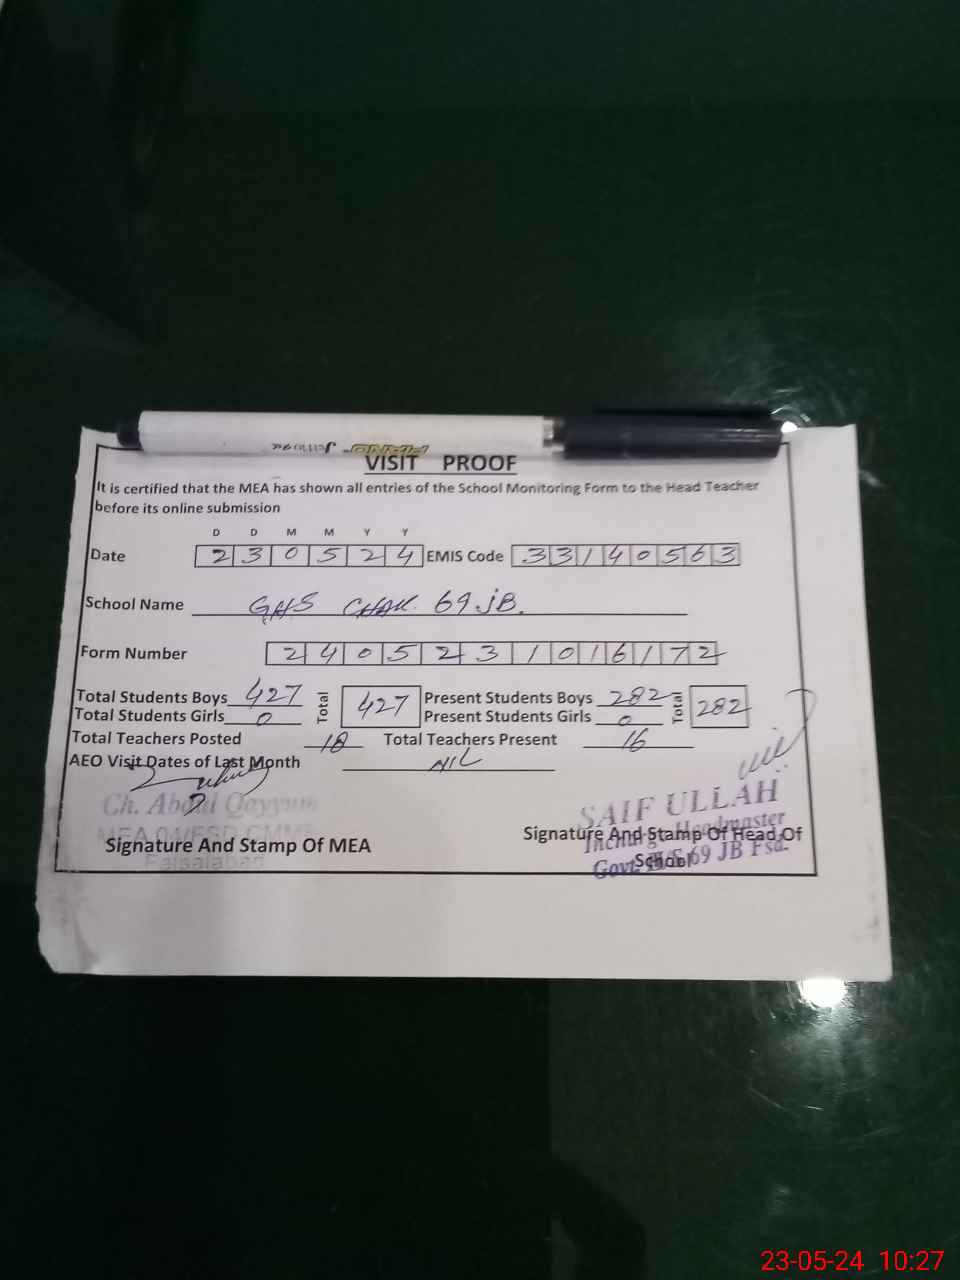 PIANO Jellinkpen
VISIT PROOF
It is certified that the MEA has shown all entries of the School Monitoring Form to the Head Teacher
before its online submission
D D M M Y Y
Date 2 3 0 5 2 4 EMIS Code 3 3 1 4 0 5 6 3
School Name GHS CHAK 69 JB.
Form Number 2 4 0 5 2 3 1 0 1 6 1 7 2
Total Students Boys 427 Total 427 Present Students Boys 282 Total 282
Total Students Girls 0 Present Students Girls 0
Total Teachers Posted 18 Total Teachers Present 16
AEO Visit Dates of Last Month NIL
Ch. Abdul Qayyum
MEA 04/FSD CMMF
Signature And Stamp Of MEA
Faisalabad
SAIF ULLAH
Incharge Headmaster
Signature And Stamp Of Head Of
School
Govt. H/S 69 JB Fsd.
23-05-24 10:27